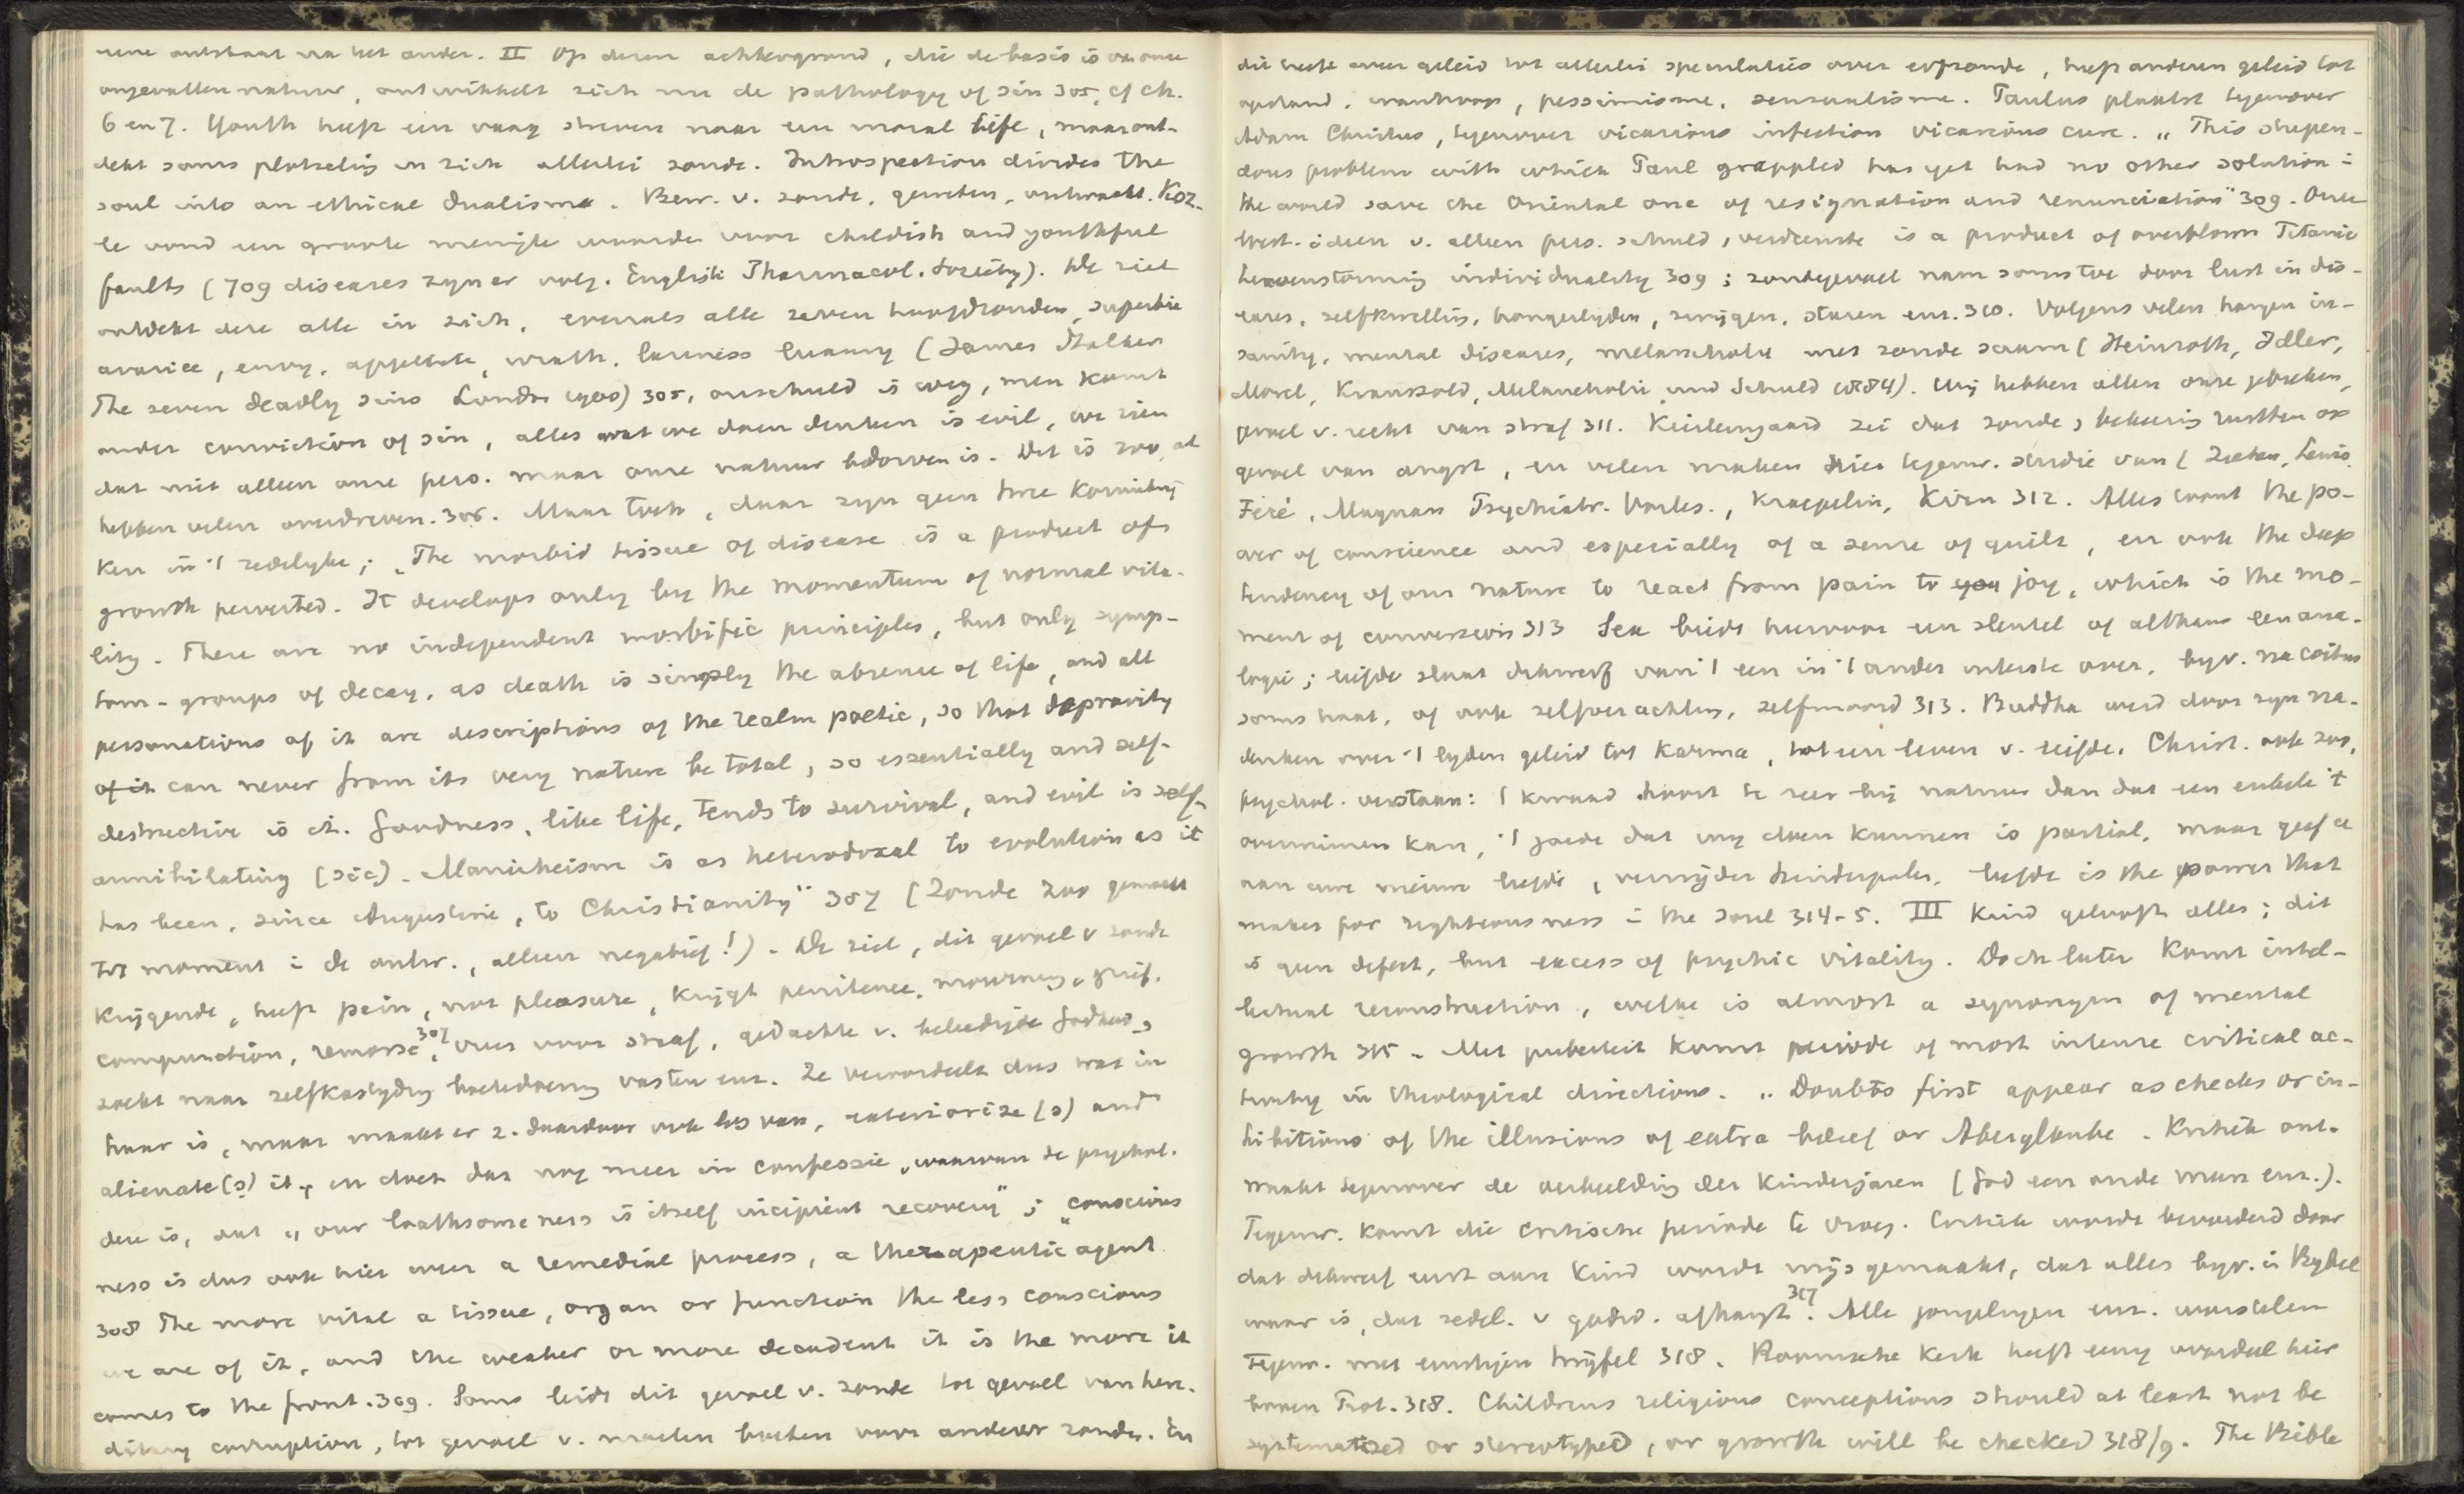 eene ontstaat na het ander. II Op dezen achtergrond, die de basis is van onze
ongevallen natuur, ontwikkelt zich nu de pathology of sin 305, cf ch.
6 en 7. Youth heeft een vaag streven naar een moral life, maar ont-
dekt soms plotseling in zich allerlei zonde. Introspection divides the
soul into an ethical dualisme. Bew. v. zonde, geweten, ontwaakt. Koz-
le vond een groote menigte woorden voor childish and youthful
faults (709 diseases zyn er volg. English Pharmacol. Society). De ziel
ontdekt deze alle in zich, evenals alle zeven hoofdzonden, superbie
avarice, envy, appetite, wrath, laziness luxury (James Stalker
The seven deadly sins London 1900) 305, onschuld is weg, men komt
under conviction of sin, alles wat we doen denken is evil, we zien
dat niet alleen onze pers. maar onze natuur bedorven is. Dit is zoo, al
hebben velen overdreven. 306. Maar toch, daar zyn geen twee
ken in 't zedelyke; „The morbid tissue of disease is a product of
growth perverted. It develops only by the momentum of normal vita-
lity. There are no independent morbific principles, but only symp-
tom-groups of decay, as death is simply the absence of life, and all
personations of it are descriptions of the realm poetic, so that depravity
of it can never from its very nature be total, so essentially and self-
destructive is it. Goodness, like life, tends to survival, and evil is self-
annihilating (sic). Manicheism is as heterodoxal to evolution as it
has been, since Augustine, to Christianity" 307 (Zonde zoo gemaakt
tot moment i de ontw., alleen negatief!). De ziel, dit gevoel v zonde
krijgende, heeft pain, not pleasure, krijgt penitence, mourning, grief,
compunction, remorse 307, vrees voor straf, gedachte v. beleedigde Godheid,
zoekt naar zelfkastyding boetedoening vasten enz. Ze veroordeelt dus wat in
haar is, maar maakt er z. daardoor ook los van, exteriorize (s) and
alienate(s) it, en doet dat nog meer in confessie, waarvan de psychol.
dese is, dat „our loathsomeness is itself incipient recovery"; „conscious
ness is dus ook hier weer a remedial process, a therapeutic agent
308 The more vital a tissue, organ or function the less conscious
we are of it, and the weaker or more decadent it is the more it
comes to the front. 309. Soms leidt dit gevoel v. zonde tot gevoel van here-
ditary corruption, tot gevoel v. moeten boeten voor anderer zonde. En
dit heeft weer geleid tot allerlei speculaties over erfzonde, heeft anderen geleid tot
opstand, wanhoop, pessimisme, sensualisme. Paulus plaatst tegenover
Adam Christus, tegenover vicarious infection vicarious cure. „This stupen-
dous problem with which Paul grappled has yet had no other solution i
the world save the Oriental one of resignation and renunciation" 309. Onze
West. ideen v. alleen pers. schuld, verdienste is a product of overblown Titanic
heavenstorming individuality 309; zondegevoel nam soms toe door lust in dis-
eases, zelfkwelling, hongerlyden, zwijgen, staren enz. 310. Volgens velen hangen in-
sanity, mental diseases, melancholie met zonde saam (Heinroth, Idler,
Morel, Krauszold, Melancholie und Schuld 1884). Wij hebben allen onze gebreken,
gevoel v. recht van straf 311. Kierkegaard zei dat zonde, bekeering rustten op
gevoel van angst, en velen maken hier tegenw. studie van (Ziehen, Lewis
Féré, Magnan Psychiatr. Vorles., Kraepelin, Kirn 312. Alles toont the po-
wer of conscience and especially of a sense of guilt, en ook the deep
tendency of our nature to react from pain to joy, which is the mo-
ment of conversion 313 Sex biedt hiervoor een sleutel of althans een ana-
logie; liefde slaat dikwerf van 't een in 't ander uiterste over, byv. na coitus
soms haat, of ook zelfverachting, zelfmoord 313. Buddha werd door zyn na-
denken over 't lyden geleid tot Karma, tot een leven v. liefde. Christ. ook zoo,
psychol. verstaan: 't kwaad hoort te zeer bij natuur dan dat een enkele 't
overwinnen kan, 't goede dat wij doen kunnen is partial, maar geef u
aan uwe nieuwe liefde, verwijder hinderpalen, liefde is the power that
makes for righteousness i the soul 314-5. III Kind gelooft alles; dit
is geen defect, but excess of psychic vitality. Doch later komt intel-
lectual reconstruction, welke is almost a synonym of mental
growth 315. Met puberteit komt periode of most intense critical ac-
tivity in theological directions. „Doubts first appear as checks or in-
hibitions of the illusions of extra belief or Aberglaube. Kritiek ont-
waakt tegenover de verbeelding der kinderjaren (God een oude man enz.).
Tegenw. komt die critische periode te vroeg. Critiek wordt bevorderd door
dat dikwerf eerst aan kind wordt wijs gemaakt, dat alles byv. in Bybel
waar is, dat zedel. v godsd. afhangt 317. Alle jongelingen enz. worstelen
tegenw. met ernstigen twijfel 318. Roomsche kerk heeft eenig voordeel hier
boven Prot. 318. Childrens religious conceptions should at least not be
systematized or stereotyped, or growth will be checked 318/9. The Bible